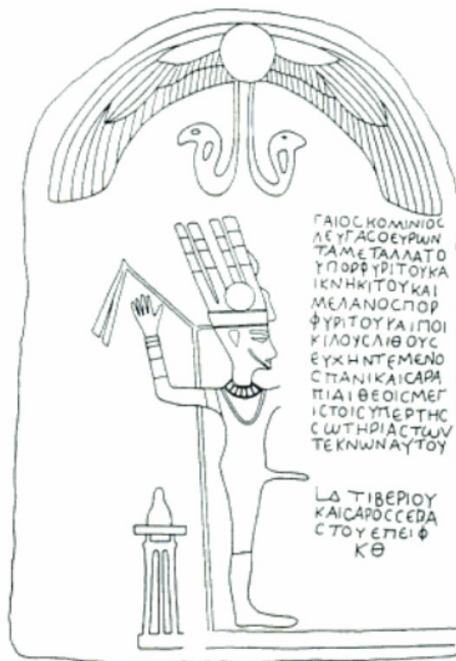 ΓΑΙΟϹΚΟΜΙΝΙΟϹ
ΛΕΥΓΑϹΟΕΥΡΩΝ
ΤΑΜΕΤΑΛΛΑΤΟ
ΥΠΟΡΦΥΡΙΤΟΥΚΑ
ΙΚΝΗΚΙΤΟΥΚΑΙ
ΜΕΛΑΝΟϹΠΟΡ
ΦΥΡΙΤΟΥΚΑΙΠΟΙ
ΚΙΛΟΥϹΛΙΘΟΥϹ
ΕΥΧΗΝΤΕΜΕΝΟ
ϹΠΑΝΙΚΑΙϹΑΡΑ
ΠΙΔΙΘΕΟΙϹΜΕΓ
ΙϹΤΟΙϹΥΠΕΡΤΗϹ
ϹΩΤΗΡΙΑϹΤΩΝ
ΤΕΚΝΩΝΑΥΤΟΥ
LΔ ΤΙΒΕΡΙΟΥ
ΚΑΙϹΑΡΟϹϹΕΒΑ
ϹΤΟΥΕΠΕΙΦ
ΚΘ